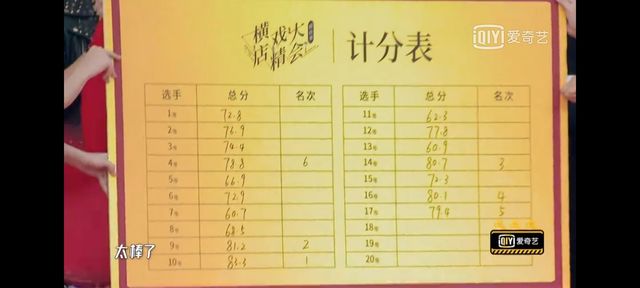 横店
戏精
火会
计分表
iQIYI 爱奇艺
选手 总分 名次 选手 总分 名次
1号 72.8 11号 62.3
2号 76.9 12号 77.8
3号 74.4 13号 60.9
4号 78.8 6 14号 80.7 3
5号 66.9 15号 72.3
6号 72.9 16号 80.1 4
7号 60.7 17号 79.4 5
8号 68.5 18号
9号 81.2 2 19号
10号 83.3 1 20号
太棒了
iQIYI 爱奇艺